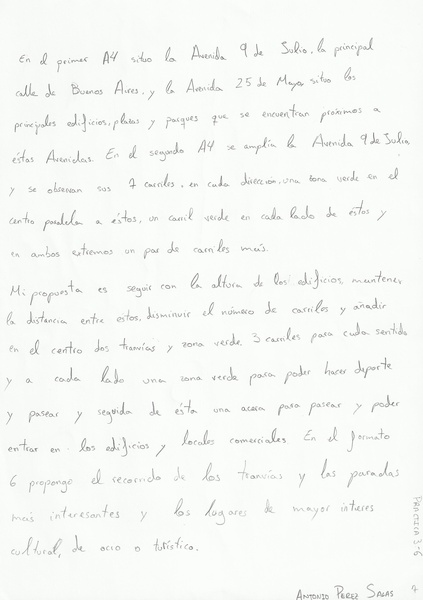 En el primer A4 situo la Avenida 9 de Julio, la principal
calle de Buenos Aires, y la Avenida 25 de Mayo, situo los
principales edificios, plazas y parques que se encuentran proximos a
éstas Avenidas. En el segundo A4 se amplía la Avenida 9 de Julio
y se observan sus 7 carriles, en cada direccion, una zona verde en el
centro paralela a éstos, un carril verde en cada lado de éstos y
en ambos extremos un par de carriles más.
Mi propuesta es seguir con la altura de los edificios, mantener
la distancia entre estos, disminuir el número de carriles y añadir
en el centro dos tranvías y zona verde, 3 carriles para cada sentido
y a cada lado una zona verde para poder hacer deporte
y pasear y seguida de ésta una acera para pasear y poder
entrar en los edificios y locales comerciales. En el formato
6 propongo el recorrido de los tranvías y las paradas
más interesantes y los lugares de mayor interes
cultural, de ocio o turístico.
PRACTICA 3-6
ANTONIO PEREZ SALAS
7